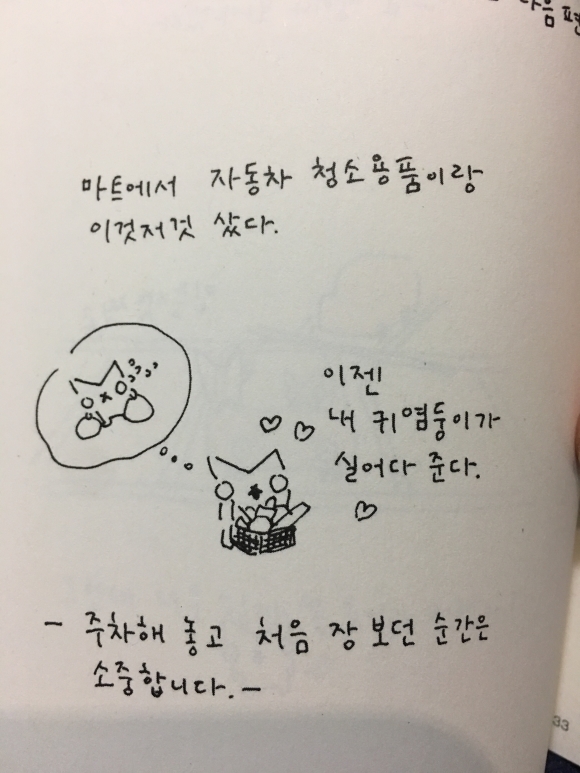 다음 편
마트에서 자동차 청소용품이랑
이것저것 샀다.
이젠
내 귀염둥이가
실어다 준다.
- 주차해 놓고 처음 장 보던 순간은
소중합니다. -
33